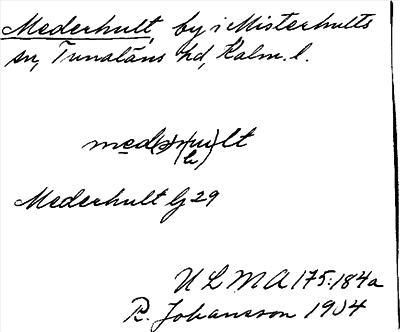 Mederhult, by i Misterhults
sn, Tunaläns hd, Kalm. l.
Mederhult lj 29
ULMA 175:184a
R. Johansson 1934